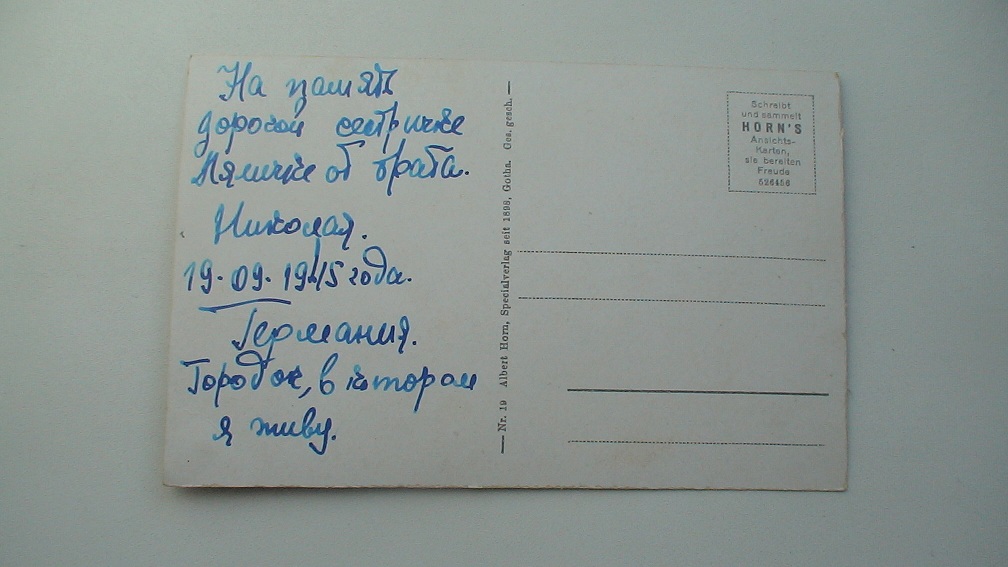 На память
дорогой сестричке
Ляличке от брата.
Николая.
19.09.1945 года.
Германия.
Городок, в котором
я живу.
Nr. 19 Albert Horn, Specialverlag seit 1898, Gotha. Ges. gesch.
Schreibt
und sammelt
HORN'S
Ansichts-
Karten,
sie bereiten
Freude
526456